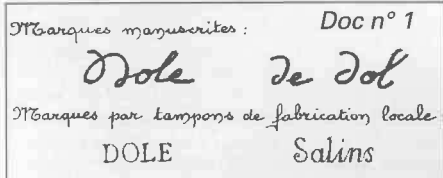 Marques manuscrites : Doc n° 1
Dole de Dol
Marques par tampons de fabrication locale
DOLE Salins